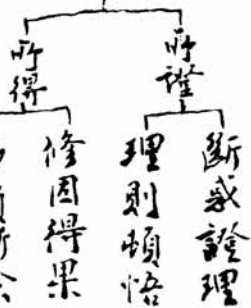 所證
斷惑證理
理則頓悟
所得
修因得果